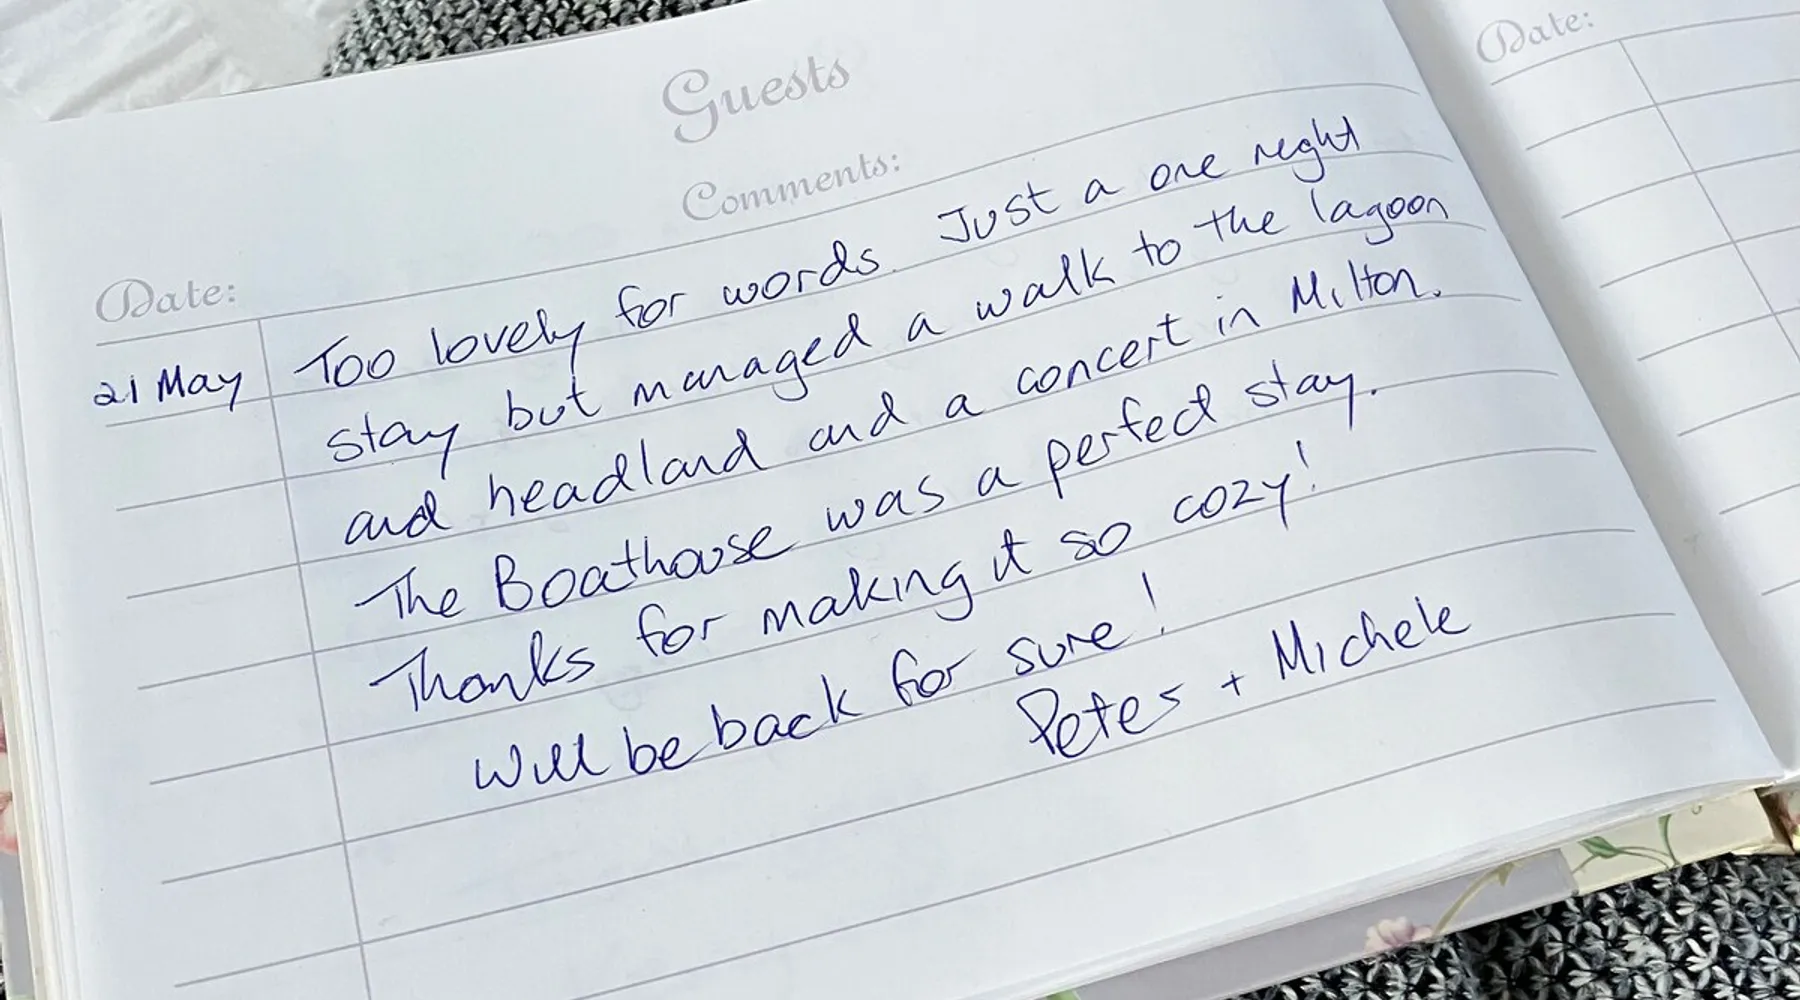 Guests
Comments:
Date:
21 May
Too lovely for words. Just a one night
stay but managed a walk to the lagoon
and headland and a concert in Milton.
The Boathouse was a perfect stay.
Thanks for making it so cozy!
Will be back for sure!
Peter + Michele
Date: